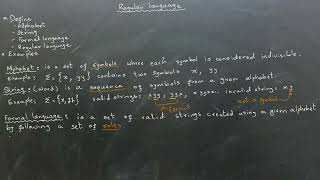 Regular language
* Define
- Alphabet
- String
- Formal language
- Regular language
* Examples
Alphabet: is a set of symbols where each symbol is considered indivisible.
Example: Σ = {x, yy} contains two symbols x, yy
String: (words) is a sequence of symbols from a given alphabet.
Example: Σ = {x, yy} valid strings: xyy, yyx, xyyx. invalid string: xy
different
not a symbol
Formal language: is a set of valid strings created using a given alphabet
by following a set of rules.